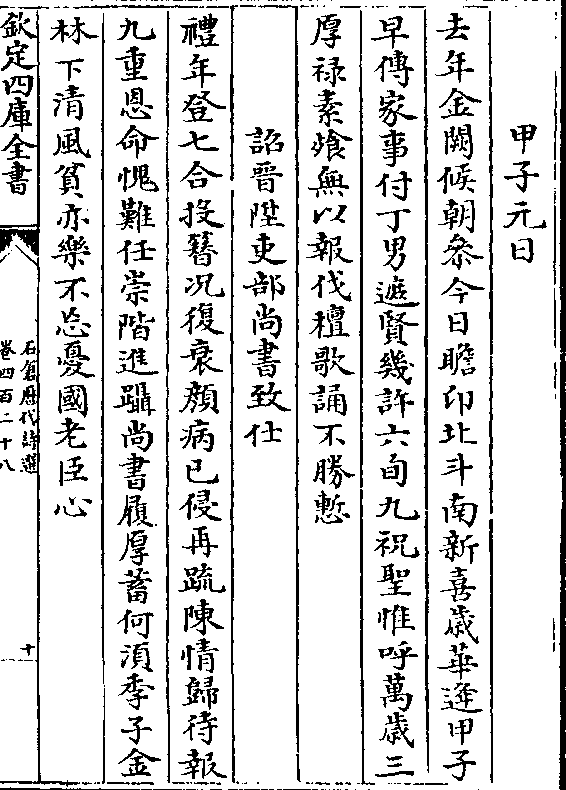 甲子元日
去年金闕候朝叅今日瞻卬北斗南新喜歳華逢甲子
早傳家事付丁男遮賢幾許六旬九祝聖惟呼萬歳三
厚禄素飱無以報伐檀歌誦不勝慙
詔晉陞吏部尚書致仕
禮年登七合投簮况復衰顔病已侵再䟽陳情歸待報
九重恩命愧難任崇階進躡尚書履厚蓄何湏季子金
林下清風貧亦樂不忘憂國老臣心
欽定四庫全書
石倉歴代詩選
卷四百二十八
十